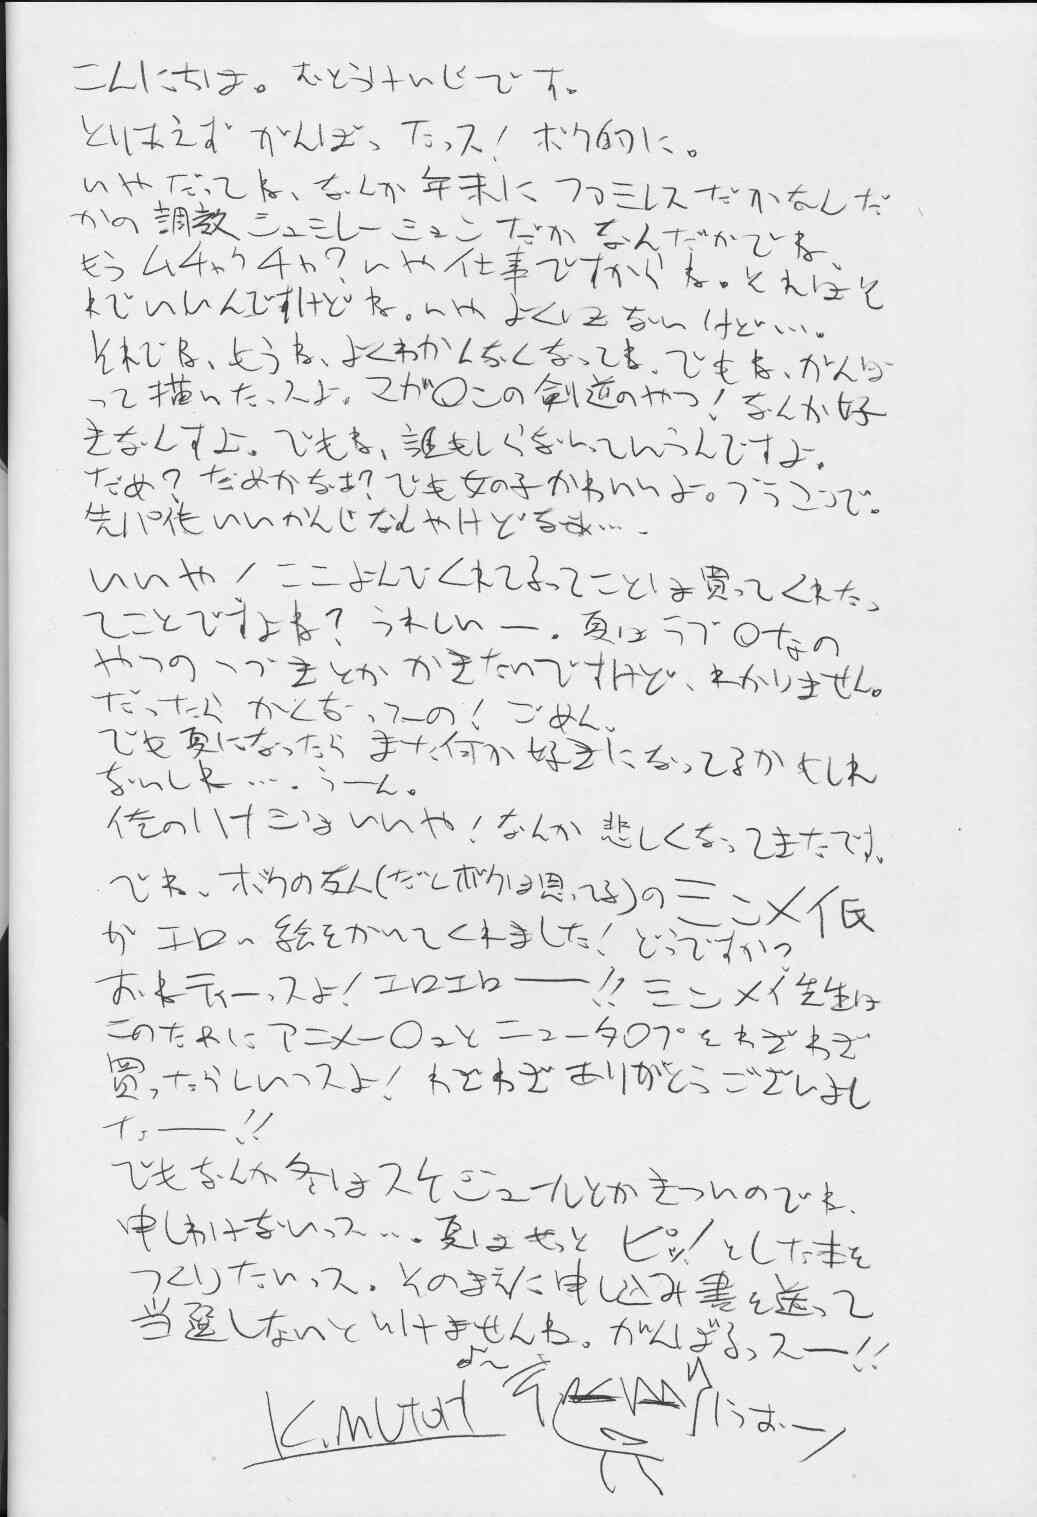 こんにちは。むとうけいじです。
とりあえず がんばったっス! ボク的に。
いやだってね、なんか年末に ファミレスだかなんだ
かの調教シュミレーションだかなんだかでね、
もうムチャクチャ?いや仕事ですからね。それはそ
れでいいんですけどね。いや よくはないけど…。
それでね、もうね、よくわかんなくなってね、でもね、がんば
って描いたっスよ。マガ〇この剣道のやつ!なんか好
きなんすよ。でもね、誰もしらないっていうんですよ。
だめ?だめかなぁ?でも女の子かわいいよ。ブラコンで。
先パイもいいかんじなんやけどなぁ…。
いいや!ここよんでくれてるってことは買ってくれたっ
てことですよね?うれしいー。夏はラブ〇なの
やつのつづきとかかきたいですけど、わかりません。
だったらかくなってーの!ごめん。
でも夏になったらまた何か好きになってるかもしれ
ないしね…。うーん。
俺のハナシはいいや!なんか悲しくなってきたです。
でね、ボクの友人(だとボクは思ってる)のミンメイ氏
がエロい絵をかいてくれました!どうですか?
おねティーっスよ!エロエロー!!ミンメイ先生は
このためにアニメー〇ュとニュータ〇プをわざわざ
買ったらしいっスよ!わざわざありがとうございまし
たー!!
でもなんか冬はスケジュールとかきついのでね、
申しわけないっス…。夏はもっとピッ!とした本を
つくりたいっス。そのまえに申し込み書を送って
当選しないといけませんね。がんばるっスー!!
K.MUTOH